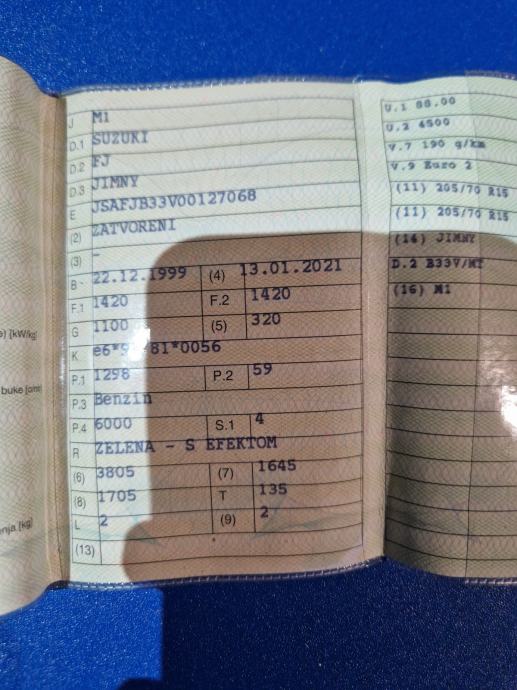 J M1
D.1 SUZUKI
D.2 FJ
D.3 JIMNY
E JSAFJB33V00127068
(2) ZATVORENI
(3) -
B - 22.12.1999 (4) 13.01.2021
F.1 1420 F.2 1420
G 1100 (5) 320
K 81*0056
P.1 1298 P.2 59
P.3 Benzin
P.4 6000 S.1 4
R ZELENA - S EFEKTOM
(6) 3805 (7) 1645
(8) 1705 T 135
L 2 (9) 2
(13)
U.1 88.00
U.2 4500
V.7 190 g/km
V.9 Euro 2
(11) 205/70 R15
(11) 205/70 R15
(14) JIMNY
D.2 B33V/MT
(16) M1
[kW/kg]
buke
[kg]